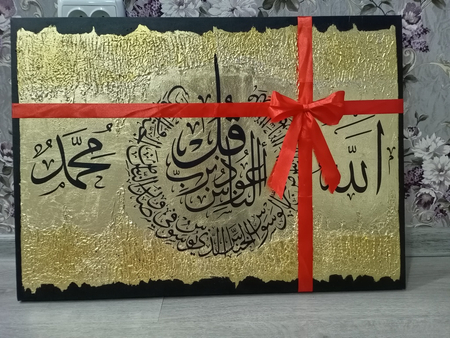 الله
قل أعوذ برب الناس
الوسواس الخناس الذي يوسوس في صدور الناس
محمد